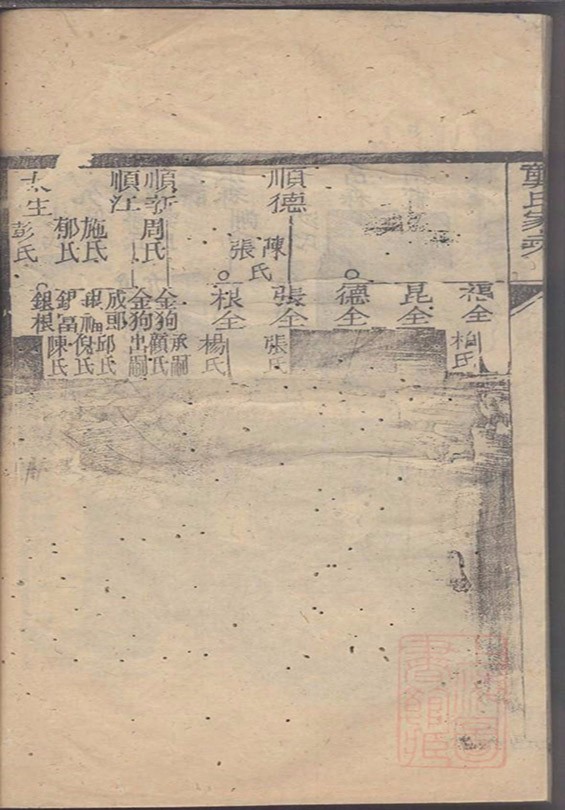 龔氏家譜
順德
陳氏
張氏
順新
周氏
順江
施氏
郁氏
生
彭氏
福全
柏氏
昆全
德全
張全
張氏
根全
楊氏
金狗
承嗣
顏氏
金狗
出嗣
成郎
邱氏
銀福
倪氏
陳氏
銀根